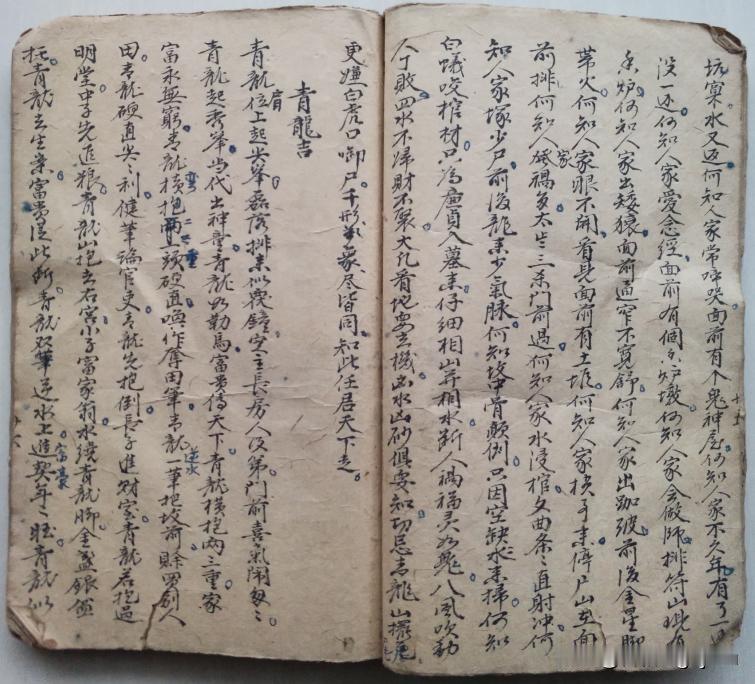 坑窠水又返何知人家常啼哭面前有个鬼神屋何知人家不久年有了一
没一还何知人家爱念經面前有個香炉墩何知人家会做師排符山此有
香炉何知人家出矮猿面前逼窄不寬舒何知人家出跏彼前後金星脚
帶火何知人家眼不開看見面前有土堆何知人家横事来停尸山在面
前排何知人家孤禍多太歲三杀門前過何知人家水浸棺文曲条々直射冲何
知人家塚少尸前後龍来少氣脉何知坟中骨颠倒只因空缺水来掃何知
白蟻咬棺材只為廉貞入墓来仔細相山并相水断人禍福灵如鬼八風吹動
人丁敗四水不歸財不聚大凡看地要玄機凶水凶砂俱要知切忌青龍山擺尾
更嫌白虎口啣尸千形萬象尽皆同知此任居天下走
青龍吉
青龍位上起尖峯磊落排来似覆鐘定主長房人仅第門前喜氣閙匆々
青龍肩起秀峯当代出神童青龍如勒馬富貴傳天下青龍横抱兩三重家
富永無窮青龍横抱頭硬直喚作奪田筆青龍逆水一筆把坟前賒買别人
田青龍硬直尖々利健筆論官吏青龍先抱倒長子進財宝青龍若抱過
明堂中子先進粮青龍山抱去右宮小子富家翁水繞青龍脚金盞銀
托青龍去生来富貴從此断青龍双筆逆水上進契年々旺青龍似